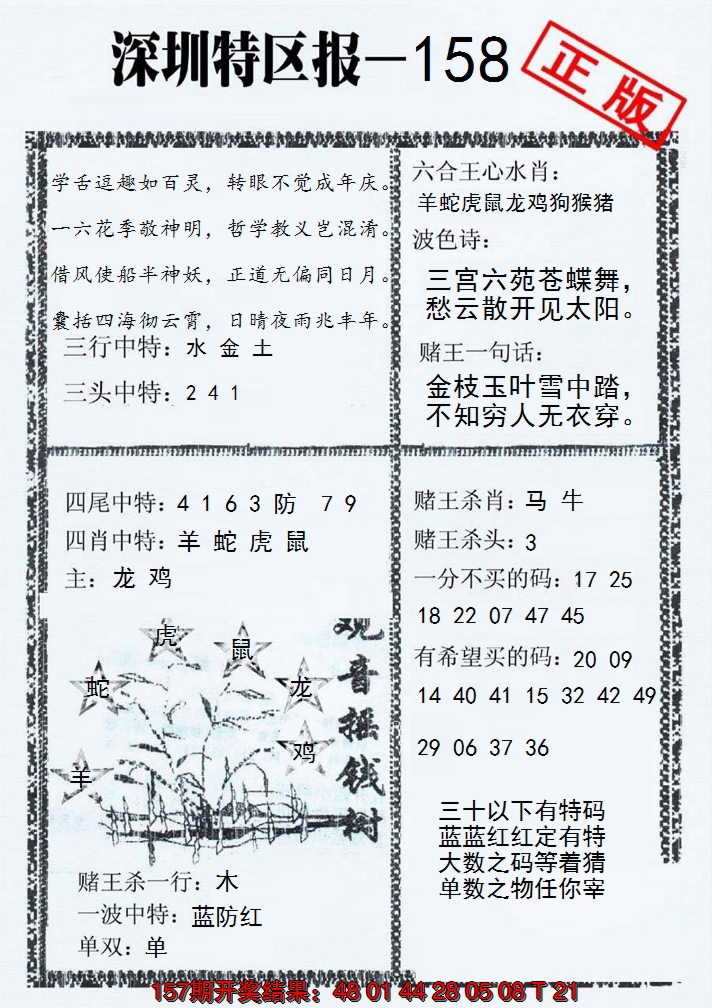 深圳特区报—158
正版
学舌逗趣如百灵，转眼不觉成年庆。
一六花季敬神明，哲学教义岂混淆。
借风使船半神妖，正道无偏同日月。
囊括四海彻云霄，日晴夜雨兆丰年。
三行中特：水 金 土
三头中特：2 4 1
六合王心水肖：
羊蛇虎鼠龙鸡狗猴猪
波色诗：
三宫六苑苍蝶舞，
愁云散开见太阳。
赌王一句话：
金枝玉叶雪中踏，
不知穷人无衣穿。
四尾中特：4 1 6 3 防 7 9
四肖中特：羊 蛇 虎 鼠
主：龙 鸡
虎
鼠
蛇
龙
鸡
羊
观音摇钱树
赌王杀一行：木
一波中特：蓝防红
单双：单
赌王杀肖：马 牛
赌王杀头：3
一分不买的码：17 25
18 22 07 47 45
有希望买的码：20 09
14 40 41 15 32 42 49
29 06 37 36
三十以下有特码
蓝蓝红红定有特
大数之码等着猜
单数之物任你宰
157期开奖结果：48 01 44 28 05 08 T 21